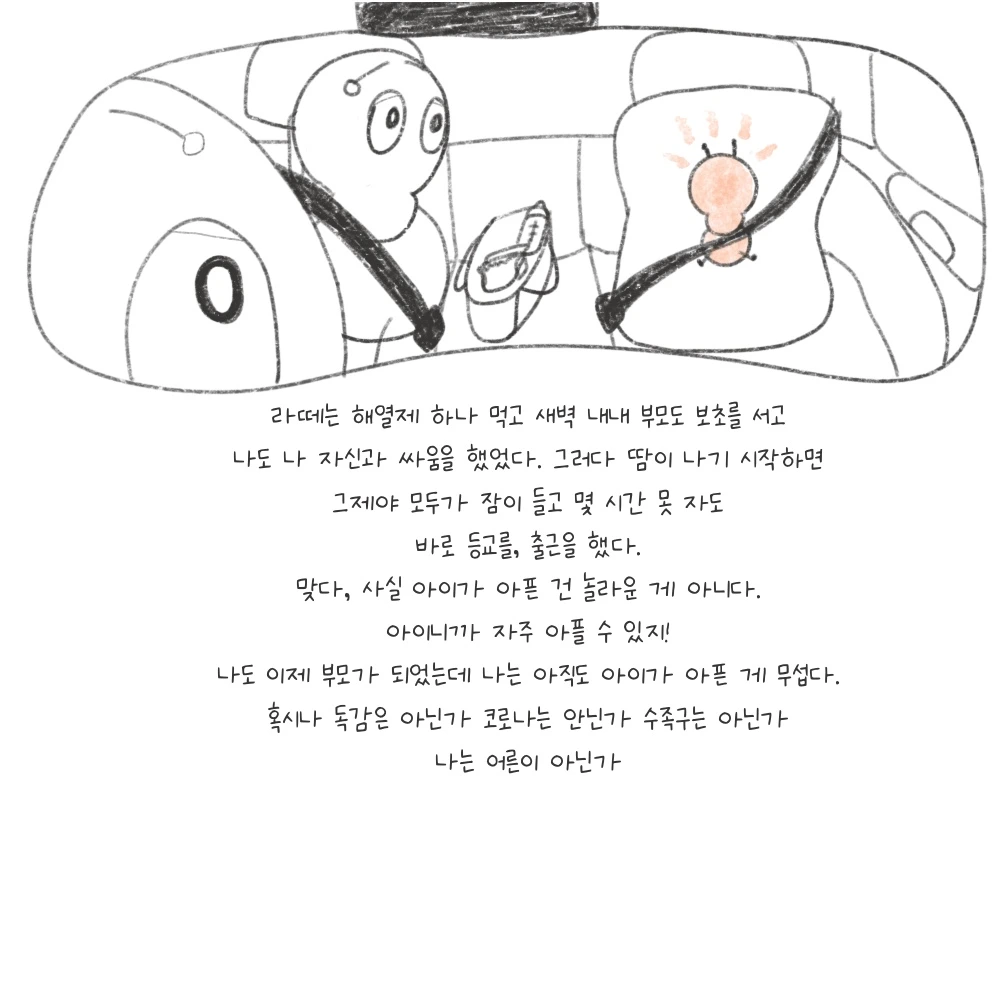 라떼는 해열제 하나 먹고 새벽 내내 부모도 보초를 서고
나도 나 자신과 싸움을 했었다. 그러다 땀이 나기 시작하면
그제야 모두가 잠이 들고 몇 시간 못 자도
바로 등교를, 출근을 했다.
맞다, 사실 아이가 아픈 건 놀라운 게 아니다.
아이니까 자주 아플 수 있지!
나도 이제 부모가 되었는데 나는 아직도 아이가 아픈 게 무섭다.
혹시나 독감은 아닌가 코로나는 안닌가 수족구는 아닌가
나는 어른이 아닌가